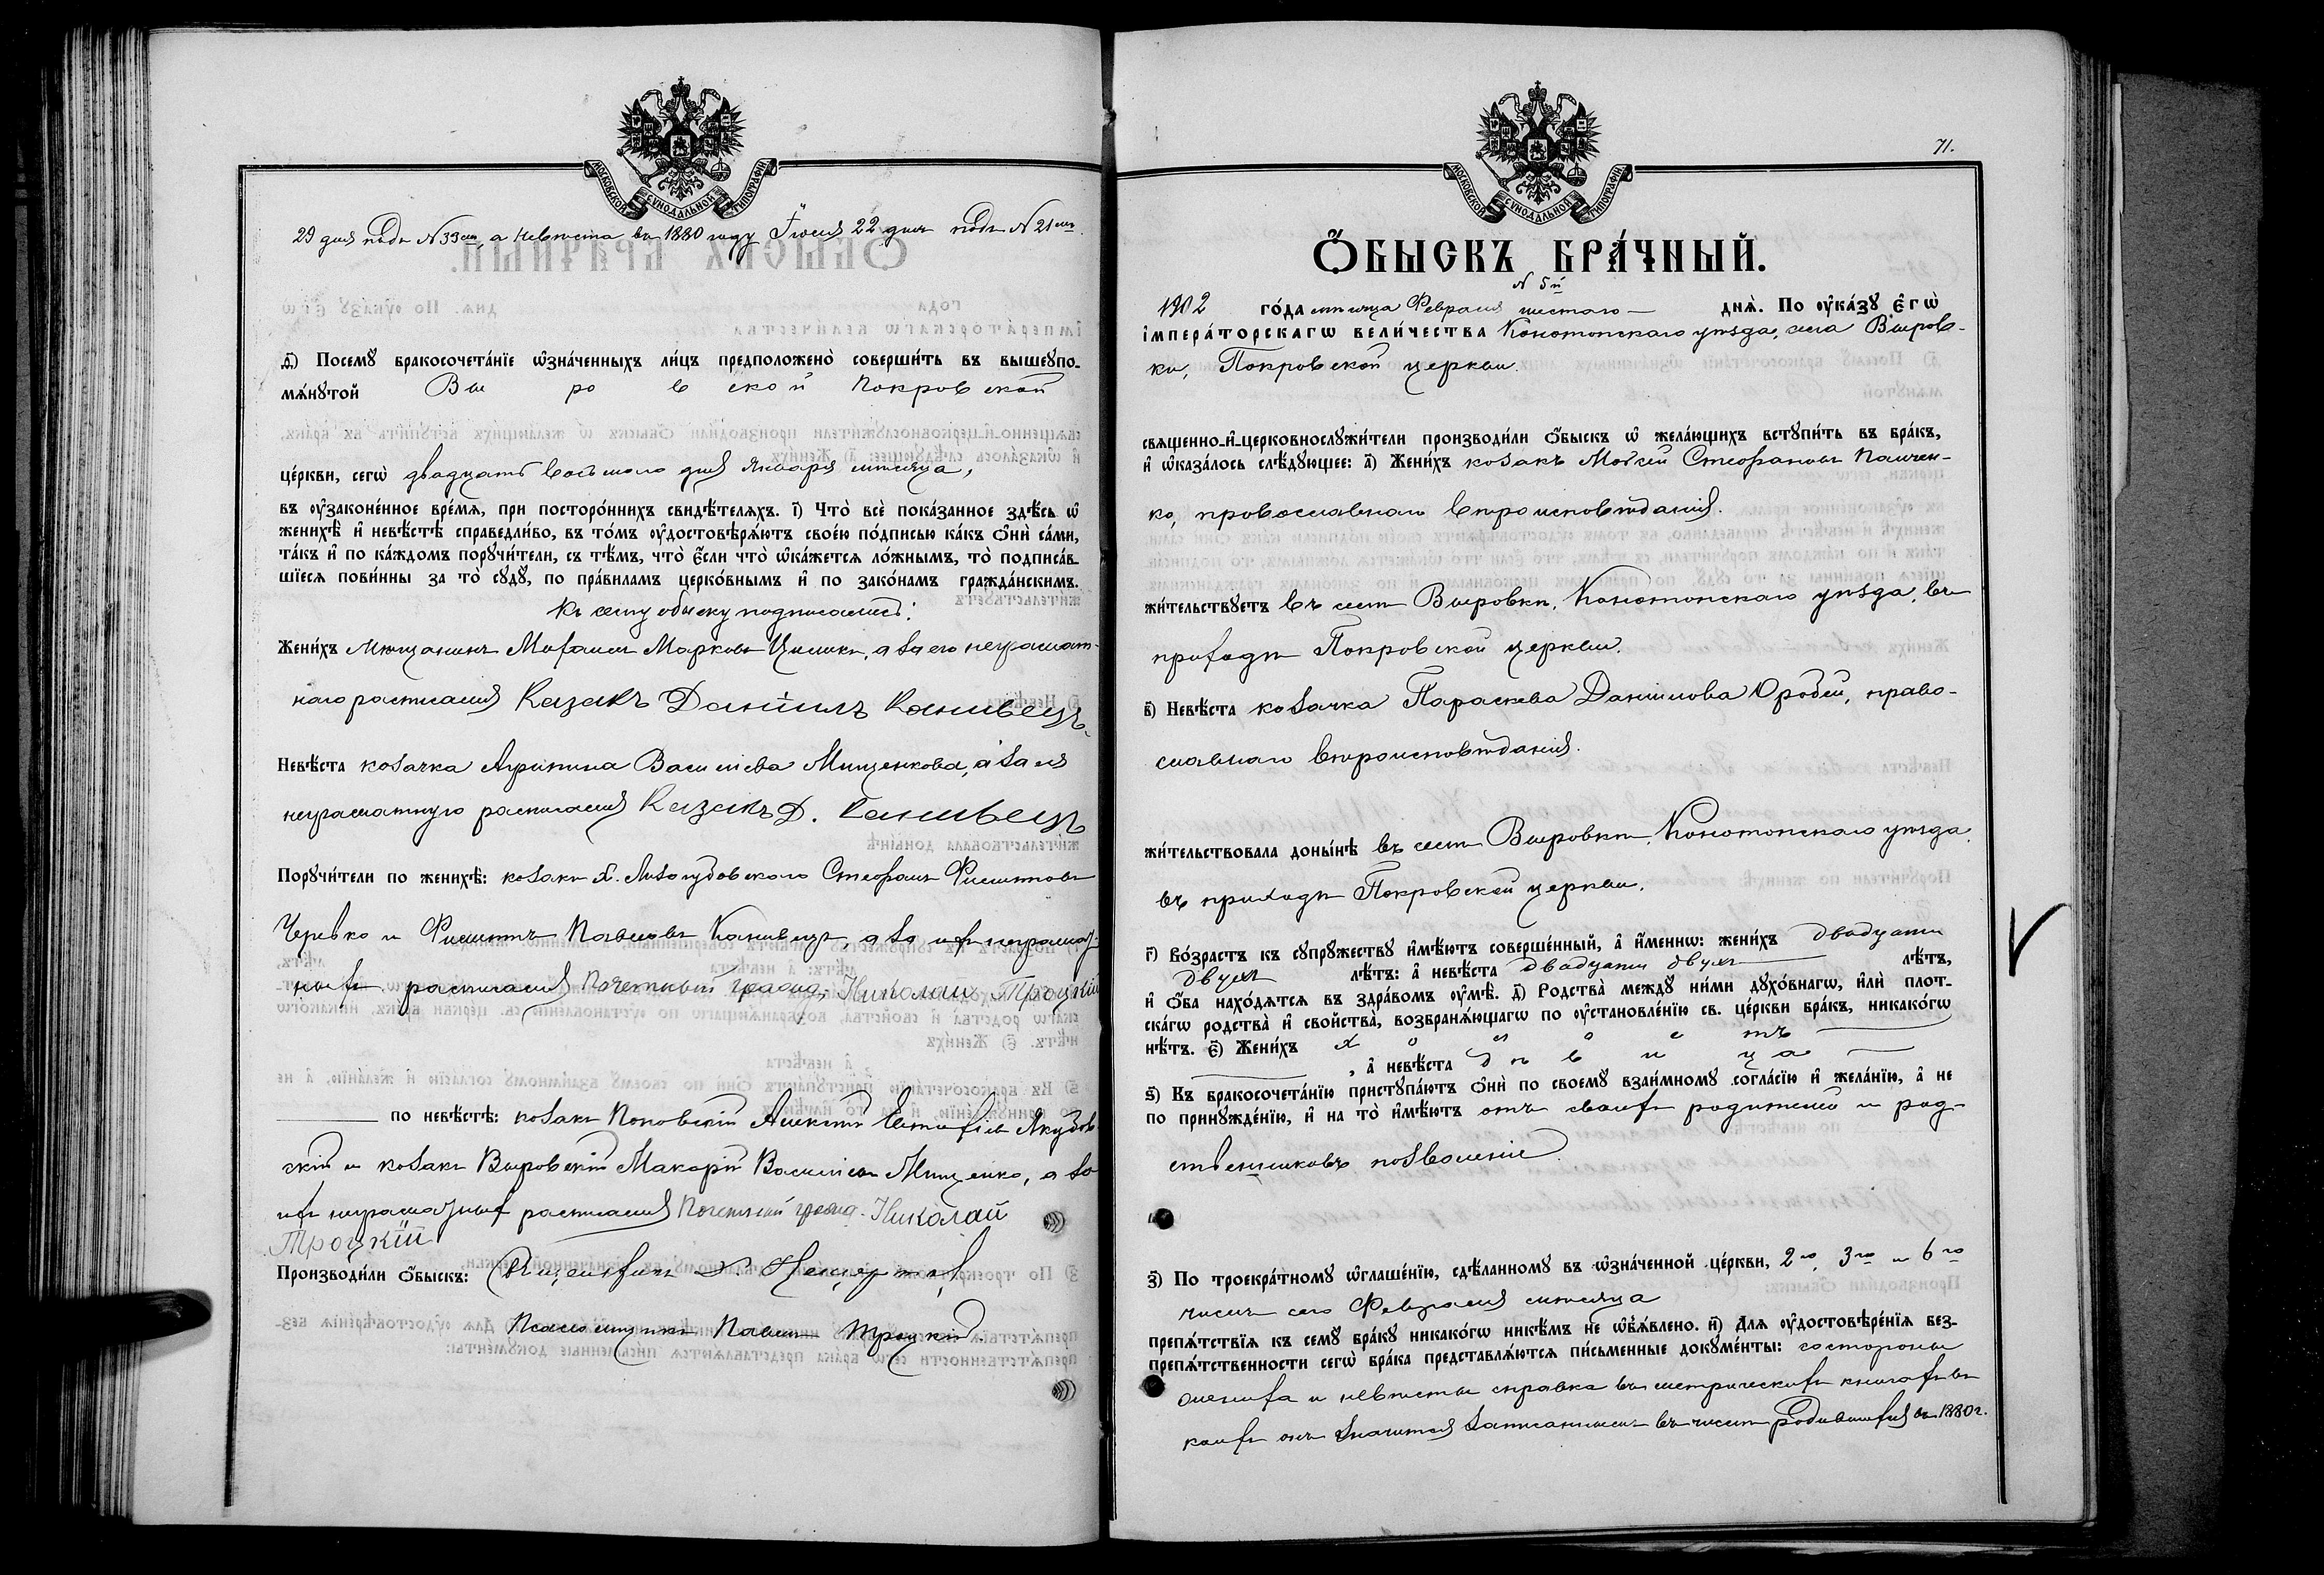 МОСКОВСКОЙ СУНОДАЛЬНОЙ ТИПОГРАФІИ
29 дня подъ N 33мъ, а невѣста въ 1880 году Іюня 22 дня подъ N 21мъ.
д҃і) Посемꙋ бракосочета́нїе ѡ҆зна́ченныхъ ли́цъ предположено̀ соверши́ть въ вышеꙋпо-
мѧ́нꙋтой Вы ро в ской Покровской
це́ркви, сегѡ̀ двадцать восьмого дня Января мѣсяца,
въ ᲂу҆законе́нное вре́мѧ, при посторо́ннихъ свидѣ́телѧхъ. і҃) Что̀ всѐ пока́занное здѣ́сь ѡ҆
женихѣ̀ и҆ невѣ́стѣ справедли́во, въ то́мъ ᲂу҆достовѣрѧ́ютъ свое́ю по́дписью ка́къ ѻ҆нѝ са́ми,
та́къ и҆ по ка́ждомъ порꙋчи́тели, съ тѣ́мъ, что̀ є҆́сли что̀ ѡ҆ка́жетсѧ ло́жнымъ, то̀ подписа́в-
шїесѧ пови́нны за то̀ сꙋдꙋ̀, по пра́виламъ церко́внымъ и҆ по зако́намъ гражда́нскимъ.
Къ сему обыску подписались:
Жени́хъ мѣщанинъ Михаилъ Марковъ а за его неграмот-
наго расписался Казакъ Даніилъ Канивецъ
Невѣ́ста козачка Агрипина Васильева Мищенкова, а за ея
неграмотную расписался Казакъ Д. Канивецъ
Порꙋчи́тели по женихѣ̀: козаки х. Лизогубовского Стефанъ Филиповъ
Черевко и Филиппъ Павловъ Канивецъ, а за ихъ неграмот-
ныхъ расписался Почетный гражд. Николай Троцкій
по невѣ́стѣ: козаки Поповскій Алексѣй Евтихіевъ Якубов
скій и козакъ Выровскій Макарій Васильевъ Мищенко, а за
ихъ неграмотныхъ расписался Почетный гражд. Николай
Троцкій
Производи́ли ѻ҆́быскъ:
Псаломщикъ Павелъ Троцкій
71.
МОСКОВСКОЙ СУНОДАЛЬНОЙ ТИПОГРАФІИ
Ѻ҆́БЫСКЪ БРА́ЧНЫЙ.
N 5й
1902 го́да мѣсяца Февраля шестого днѧ̀. По ᲂу҆ка́зꙋ є҆гѡ̀
і҆мпера́торскагѡ вели́чества Конотопскаго уѣзда, села Выров-
ки, Покровской церкви.
свѧщенно-и҆-церковнослꙋжи́тели производи́ли ѻ҆́быскъ ѡ҆ жела́ющихъ встꙋпи́ть въ бра́къ,
и҆ ѡ҆каза́лось слѣ́дꙋющее: а҃) Жени́хъ козакъ Мойсей Стефановъ Панчен-
ко, православнаго вѣроисповѣданія.
жи́тельствꙋетъ въ селѣ Выровки, Конотопскаго уѣзда, въ
приходѣ Покровской церкви.
в҃) Невѣ́ста козачка Параскева Даніилова Юродей, право-
славнаго вѣроисповѣданія.
жи́тельствовала доны́нѣ въ селѣ Выровкѣ, Конотопскаго уѣзда,
въ приходѣ Покровской церкви.
г҃) Во́зрастъ къ сꙋпрꙋжествꙋ и҆мѣ́ютъ соверше́нный, а҆ и҆́меннѡ: жени́хъ двадцати
двухъ лѣ́тъ: а҆ невѣ́ста двадцати двухъ лѣ́тъ,
и҆ ѻ҆́ба нахо́дѧтсѧ въ здра́вомъ ᲂу҆мѣ̀. д҃) Родства̀ междꙋ ни́ми дꙋхо́внагѡ, и҆лѝ плот-
ска́гѡ родства̀ и҆ сво́йства̀, возбранѧ́ющагѡ по ᲂу҆становле́нїю св. це́ркви бра́къ, никако́гѡ
нѣ́тъ. є҃) Жени́хъ х о л о с тъ
, а҆ невѣ́ста д ѣ в и ц а
ѕ҃) Къ бракосочета́нїю пристꙋпа́ютъ ѻ҆нѝ по своемꙋ взаи́мномꙋ согла́сїю и҆ жела́нїю, а҆ не
по принꙋжде́нїю, и҆ на то̀ и҆мѣ́ютъ отъ своихъ родителей и род-
ственниковъ позволеніе.
з҃) По троекра́тномꙋ ѡ҆глаше́нїю, сдѣ́ланномꙋ въ ѡ҆зна́ченной це́ркви, 2го, 3го и 6го
числъ сего Февраля мѣсяца
препѧ́тствїѧ къ семꙋ бра́кꙋ никако́гѡ никѣ́мъ не ѡ҆б̾ѧ́влено. и҃) Длѧ ᲂу҆достовѣре́нїѧ без-
препѧ́тственности сегѡ̀ бра́ка представлѧ́ютсѧ пи́сьменные докꙋме́нты: со стороны
жениха и невѣсты справка въ метрическихъ книгахъ въ
коихъ онъ значится записаннымъ въ числѣ родившихся въ 1880 г.